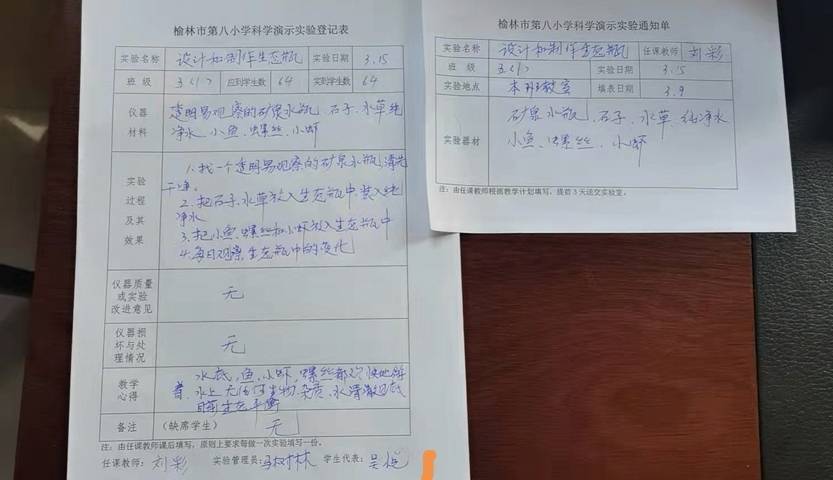 榆林市第八小学科学演示实验登记表
实验名称 设计和制作生态瓶 实验日期 3.15
班 级 3(1) 应到学生数 64 实到学生数 64
仪器材料
透明易观察的矿泉水瓶、石子、水草、纯
净水、小鱼、螺丝、小虾
实验过程及其效果
1.找一个透明易观察的矿泉水瓶,清洗
干净。
2.把石子、水草放入生态瓶中,装入纯
净水
3.把小鱼、螺丝和小虾放入生态瓶中
4.每日观察生态瓶中的变化
仪器质量或实验改进意见
无
仪器损坏与处理情况
无
教学心得
水底,鱼、小虾,螺丝都欢快地
着,水上无 生物杂质,水清澈
生态平衡
备注 (缺席学生) 无
注:由任课教师课后填写,原则上要求每做一次实验填写一份。
任课教师:刘彩 实验管理员:马树林 学生代表:吴悦
榆林市第八小学科学演示实验通知单
实验名称 设计和制作生态瓶 任课教师 刘彩
班 级 3(1) 实验日期 3.15
实验地点 本班教室 填表日期 3.9
实验器材
矿泉水瓶、石子、水草、纯净水
小鱼、螺丝、小虾
注:由任课教师根据教学计划填写,提前3天送交实验室。